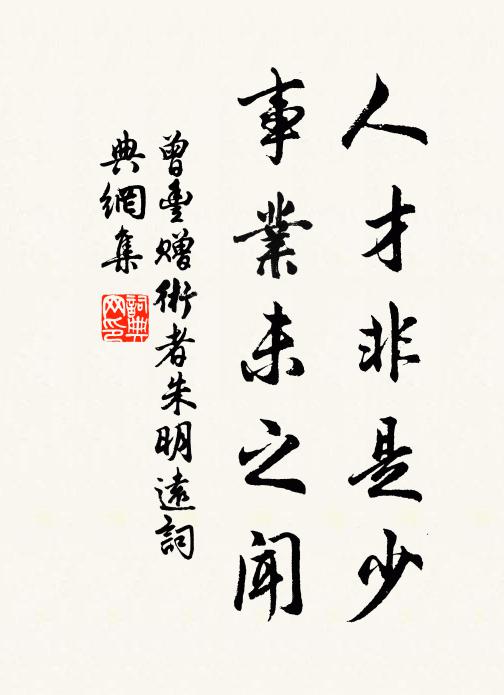 人才非是少
事業未之聞
曾豐贈術者朱明遠詞
典網集
詞典
网印